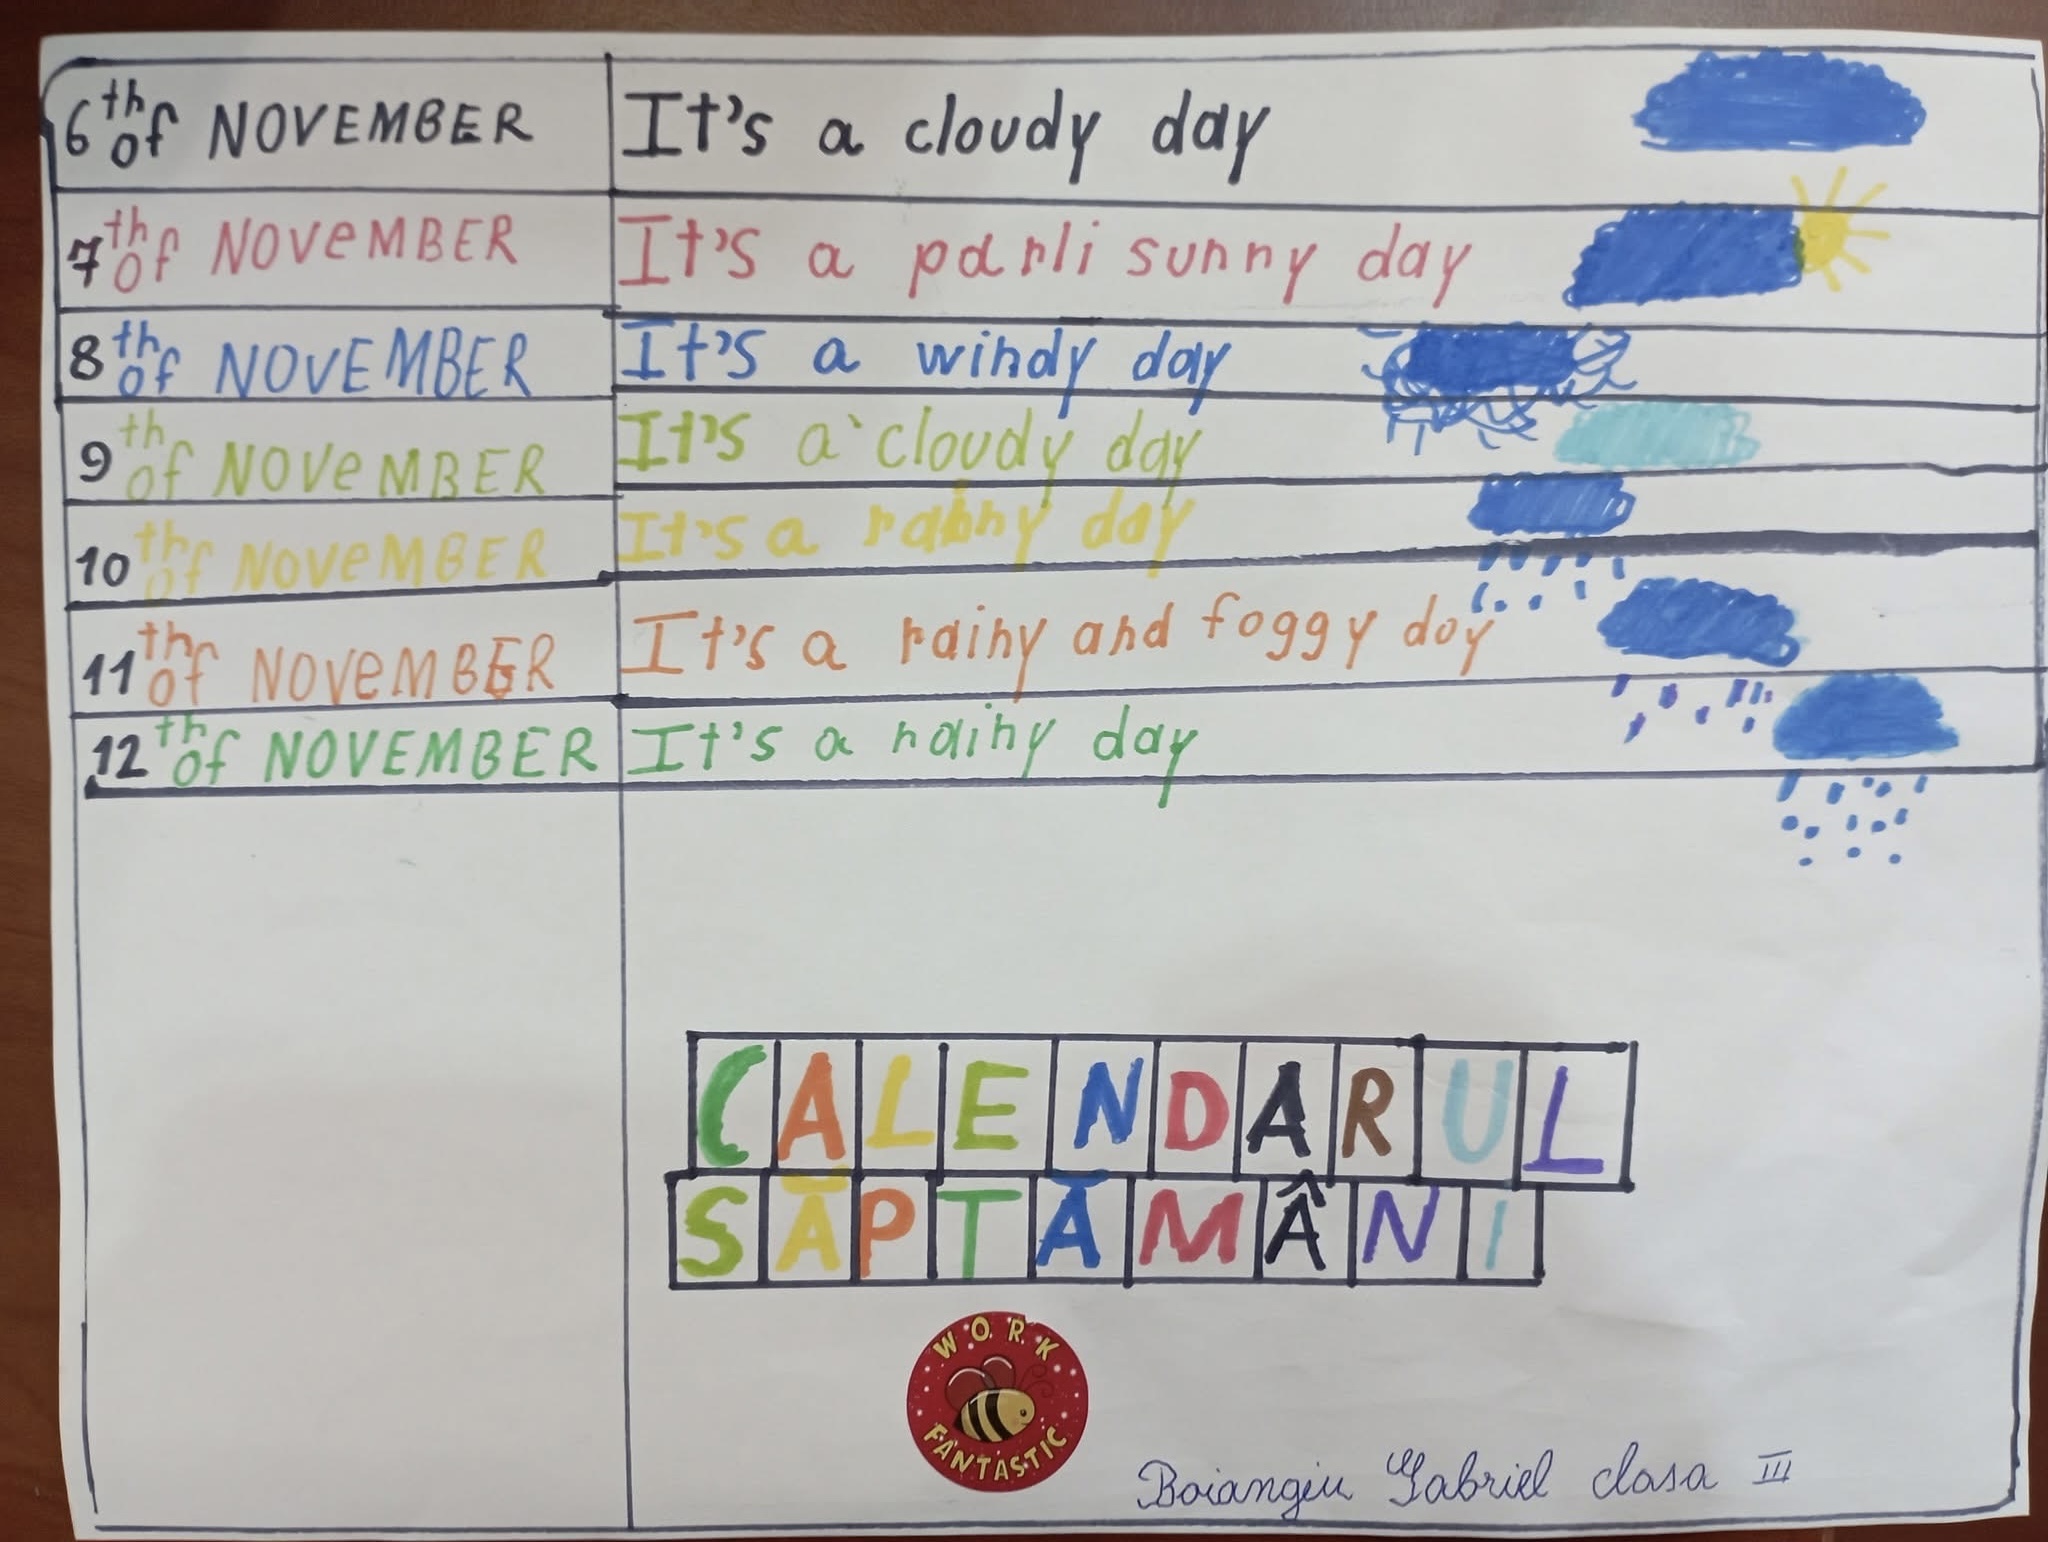 6th of NOVEMBER It's a cloudy day
7th of NOVeMBER It's a parli sunny day
8th of NOVEMBER It's a windy day
9th of NOVeMBER It's a cloudy day
10th of NOVeMBER It's a rainy day
11th of NOVeMBER It's a rainy and foggy day
12th of NOVEMBER It's a rainy day
CALENDARUL
SĂPTĂMÂNI
WORK
FANTASTIC
Boiangiu Gabriel clasa III